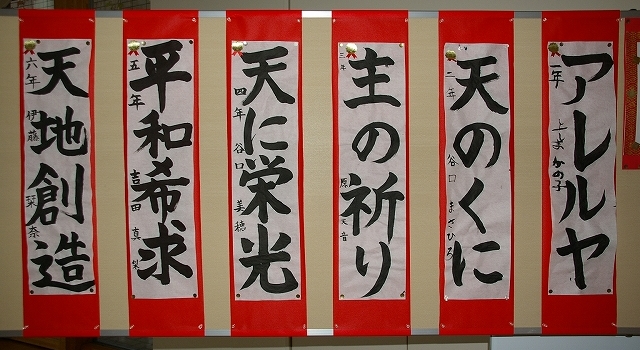 アレルヤ
一年
かの子
天のくに
二年 谷口 まさひろ
主の祈り
三年
天に栄光
四年 谷口 美穂
平和希求
五年 吉田 真梨
天地創造
六年 伊藤 栞奈